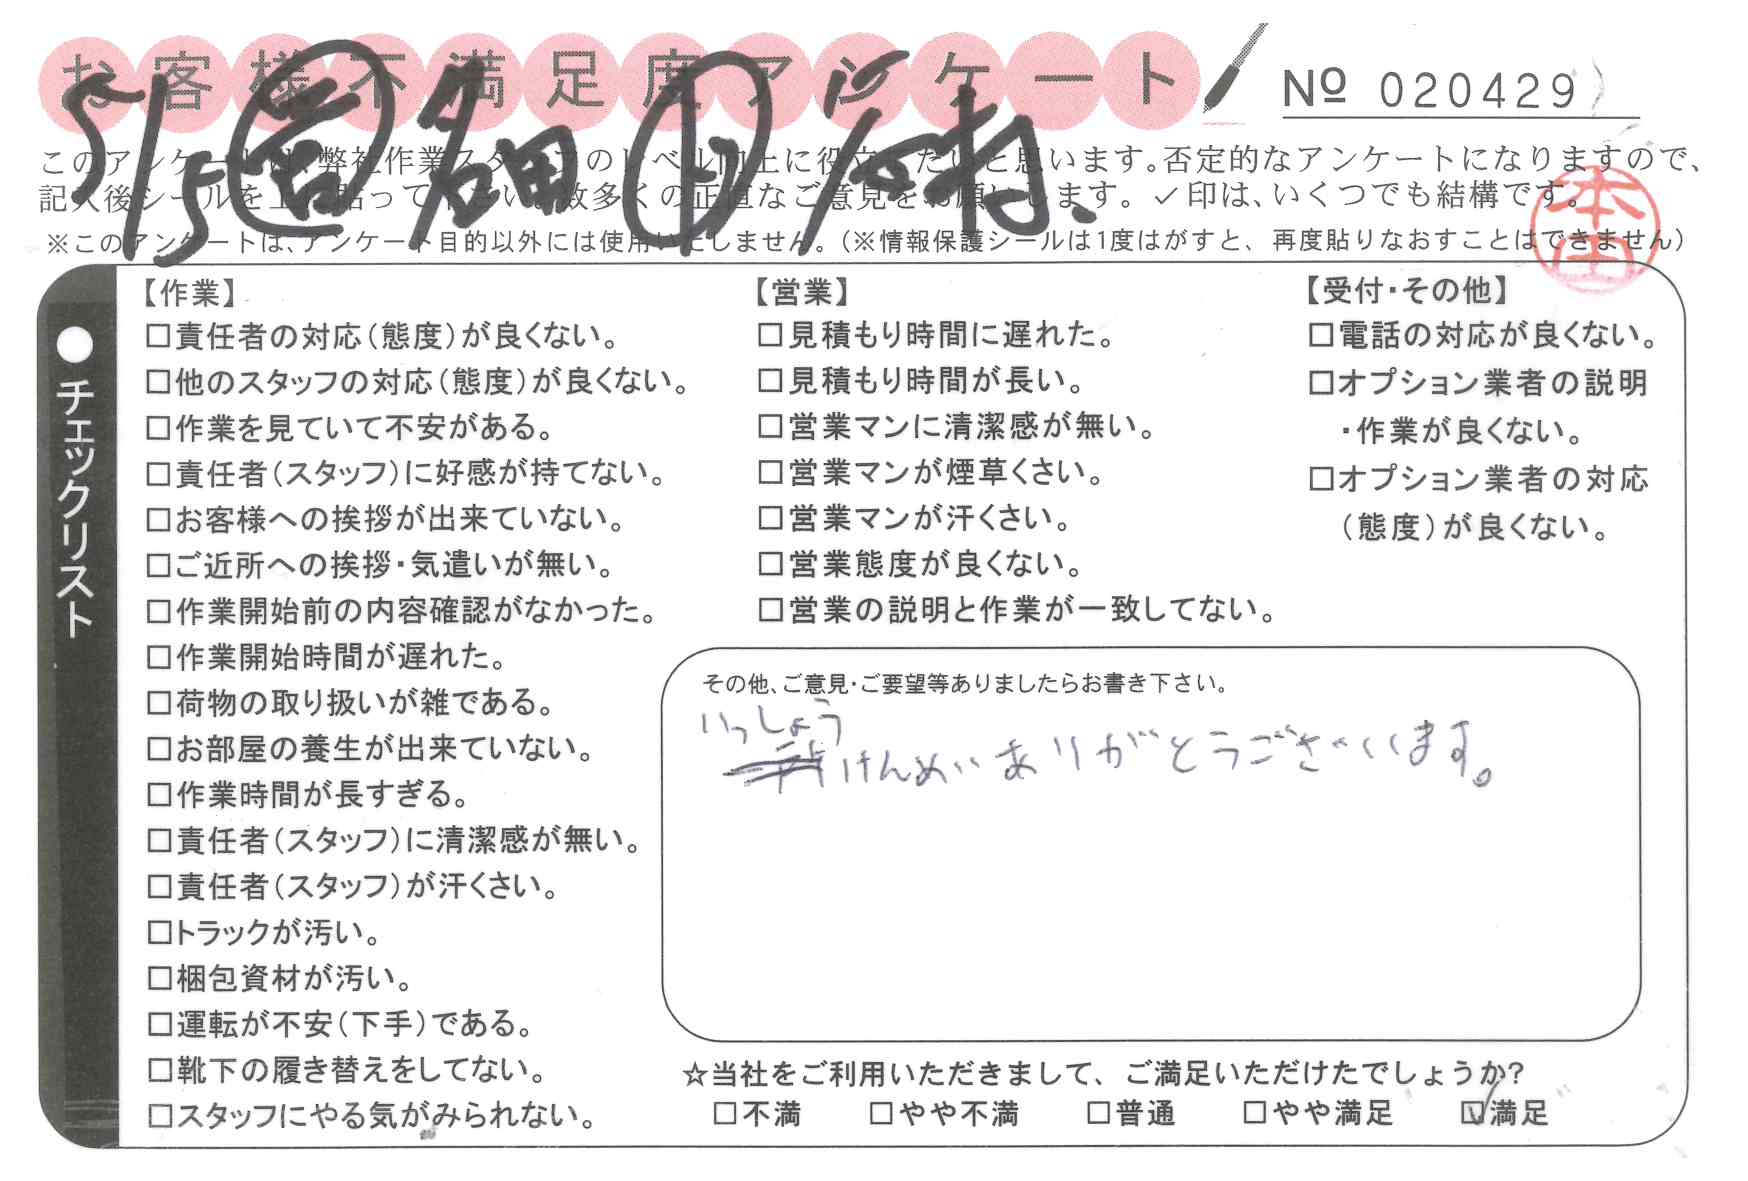 お客様不満足度アンケート
Nº 020429
5/5
このアンケートは、弊社作業スタッフのレベル向上に役立てたいと思います。否定的なアンケートになりますので、
記入後シールを上に貼って下さい。数多くの正直なご意見をお願いします。✓印は、いくつでも結構です。
※このアンケートは、アンケート目的以外には使用いたしません。(※情報保護シールは1度はがすと、再度貼りなおすことはできません)
●チェックリスト
【作業】
□責任者の対応(態度)が良くない。
□他のスタッフの対応(態度)が良くない。
□作業を見ていて不安がある。
□責任者(スタッフ)に好感が持てない。
□お客様への挨拶が出来ていない。
□ご近所への挨拶・気遣いが無い。
□作業開始前の内容確認がなかった。
□作業開始時間が遅れた。
□荷物の取り扱いが雑である。
□お部屋の養生が出来ていない。
□作業時間が長すぎる。
□責任者(スタッフ)に清潔感が無い。
□責任者(スタッフ)が汗くさい。
□トラックが汚い。
□梱包資材が汚い。
□運転が不安(下手)である。
□靴下の履き替えをしてない。
□スタッフにやる気がみられない。
【営業】
□見積もり時間に遅れた。
□見積もり時間が長い。
□営業マンに清潔感が無い。
□営業マンが煙草くさい。
□営業マンが汗くさい。
□営業態度が良くない。
□営業の説明と作業が一致してない。
【受付・その他】
□電話の対応が良くない。
□オプション業者の説明
・作業が良くない。
□オプション業者の対応
(態度)が良くない。
その他、ご意見・ご要望等ありましたらお書き下さい。
いっしょう
けんめいありがとうございます。
☆当社をご利用いただきまして、ご満足いただけたでしょうか?
□不満 □やや不満 □普通 □やや満足 ☑満足